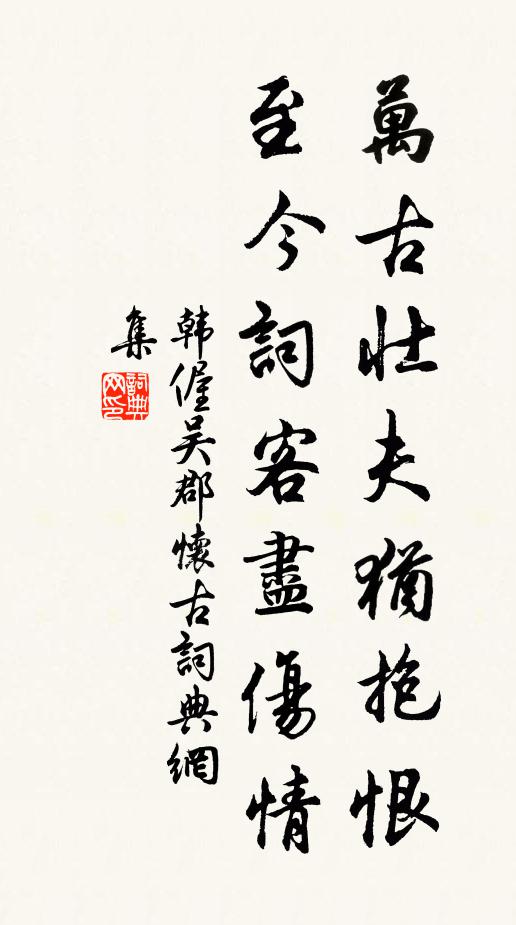 萬古壯夫猶抱恨
至今詞客盡傷情
韩偓吳郡懷古詞典網
集
詞典
网印